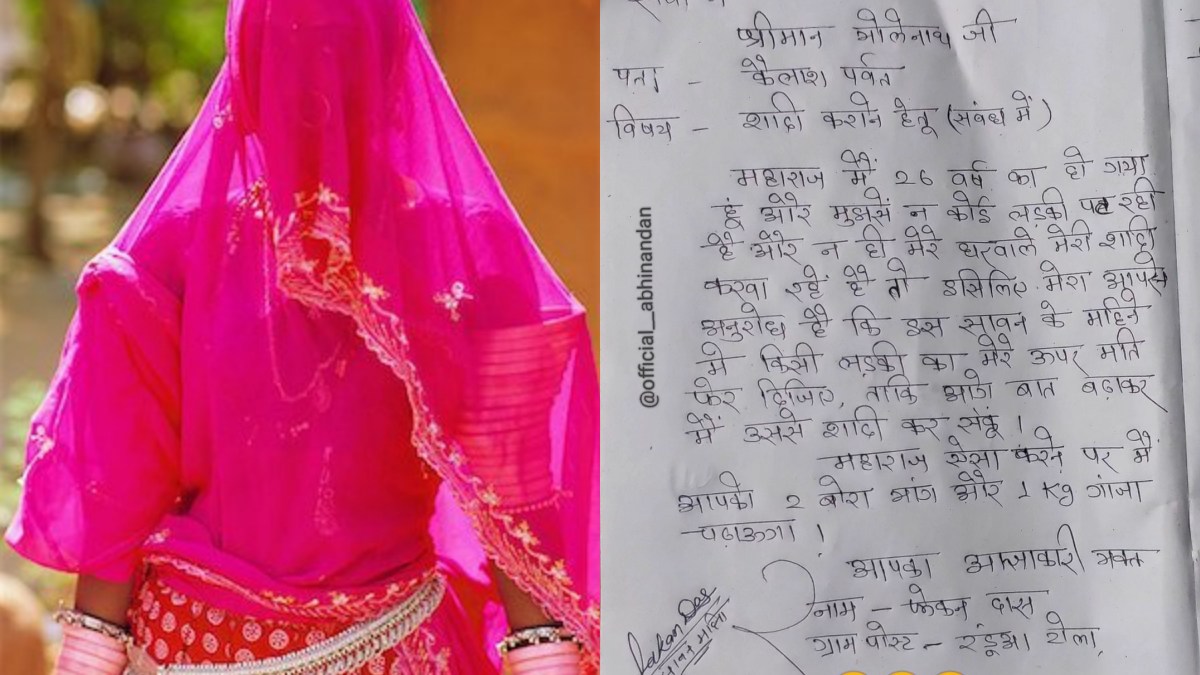 श्रीमान भोलेनाथ जी
पता - कैलाश पर्वत
विषय - शादी कराने हेतू (संबंध में)
महाराज मैं 26 वर्ष का हो गया
हूं और मुझसे न कोई लड़की पट रही
है और न ही मेरे घरवाले मेरी शादी
करवा रहें हैं तो इसिलिए मेरा आपसे
अनुरोध है कि इस सावन के महिने
मे किसी लड़की का मेरे ऊपर मति
फेर दिजिए, ताकि आगे बात बढ़ाकर
मैं उससे शादी कर सकूं।
महाराज ऐसा करने पर मैं
आपको 2 बोरा भांग और 1 Kg गांजा
चढ़ाऊगा।
आपका आज्ञाकारी भक्त
नाम - फेकन दास
ग्राम पोस्ट - रंडूआ टोला,
@official__abhinandan